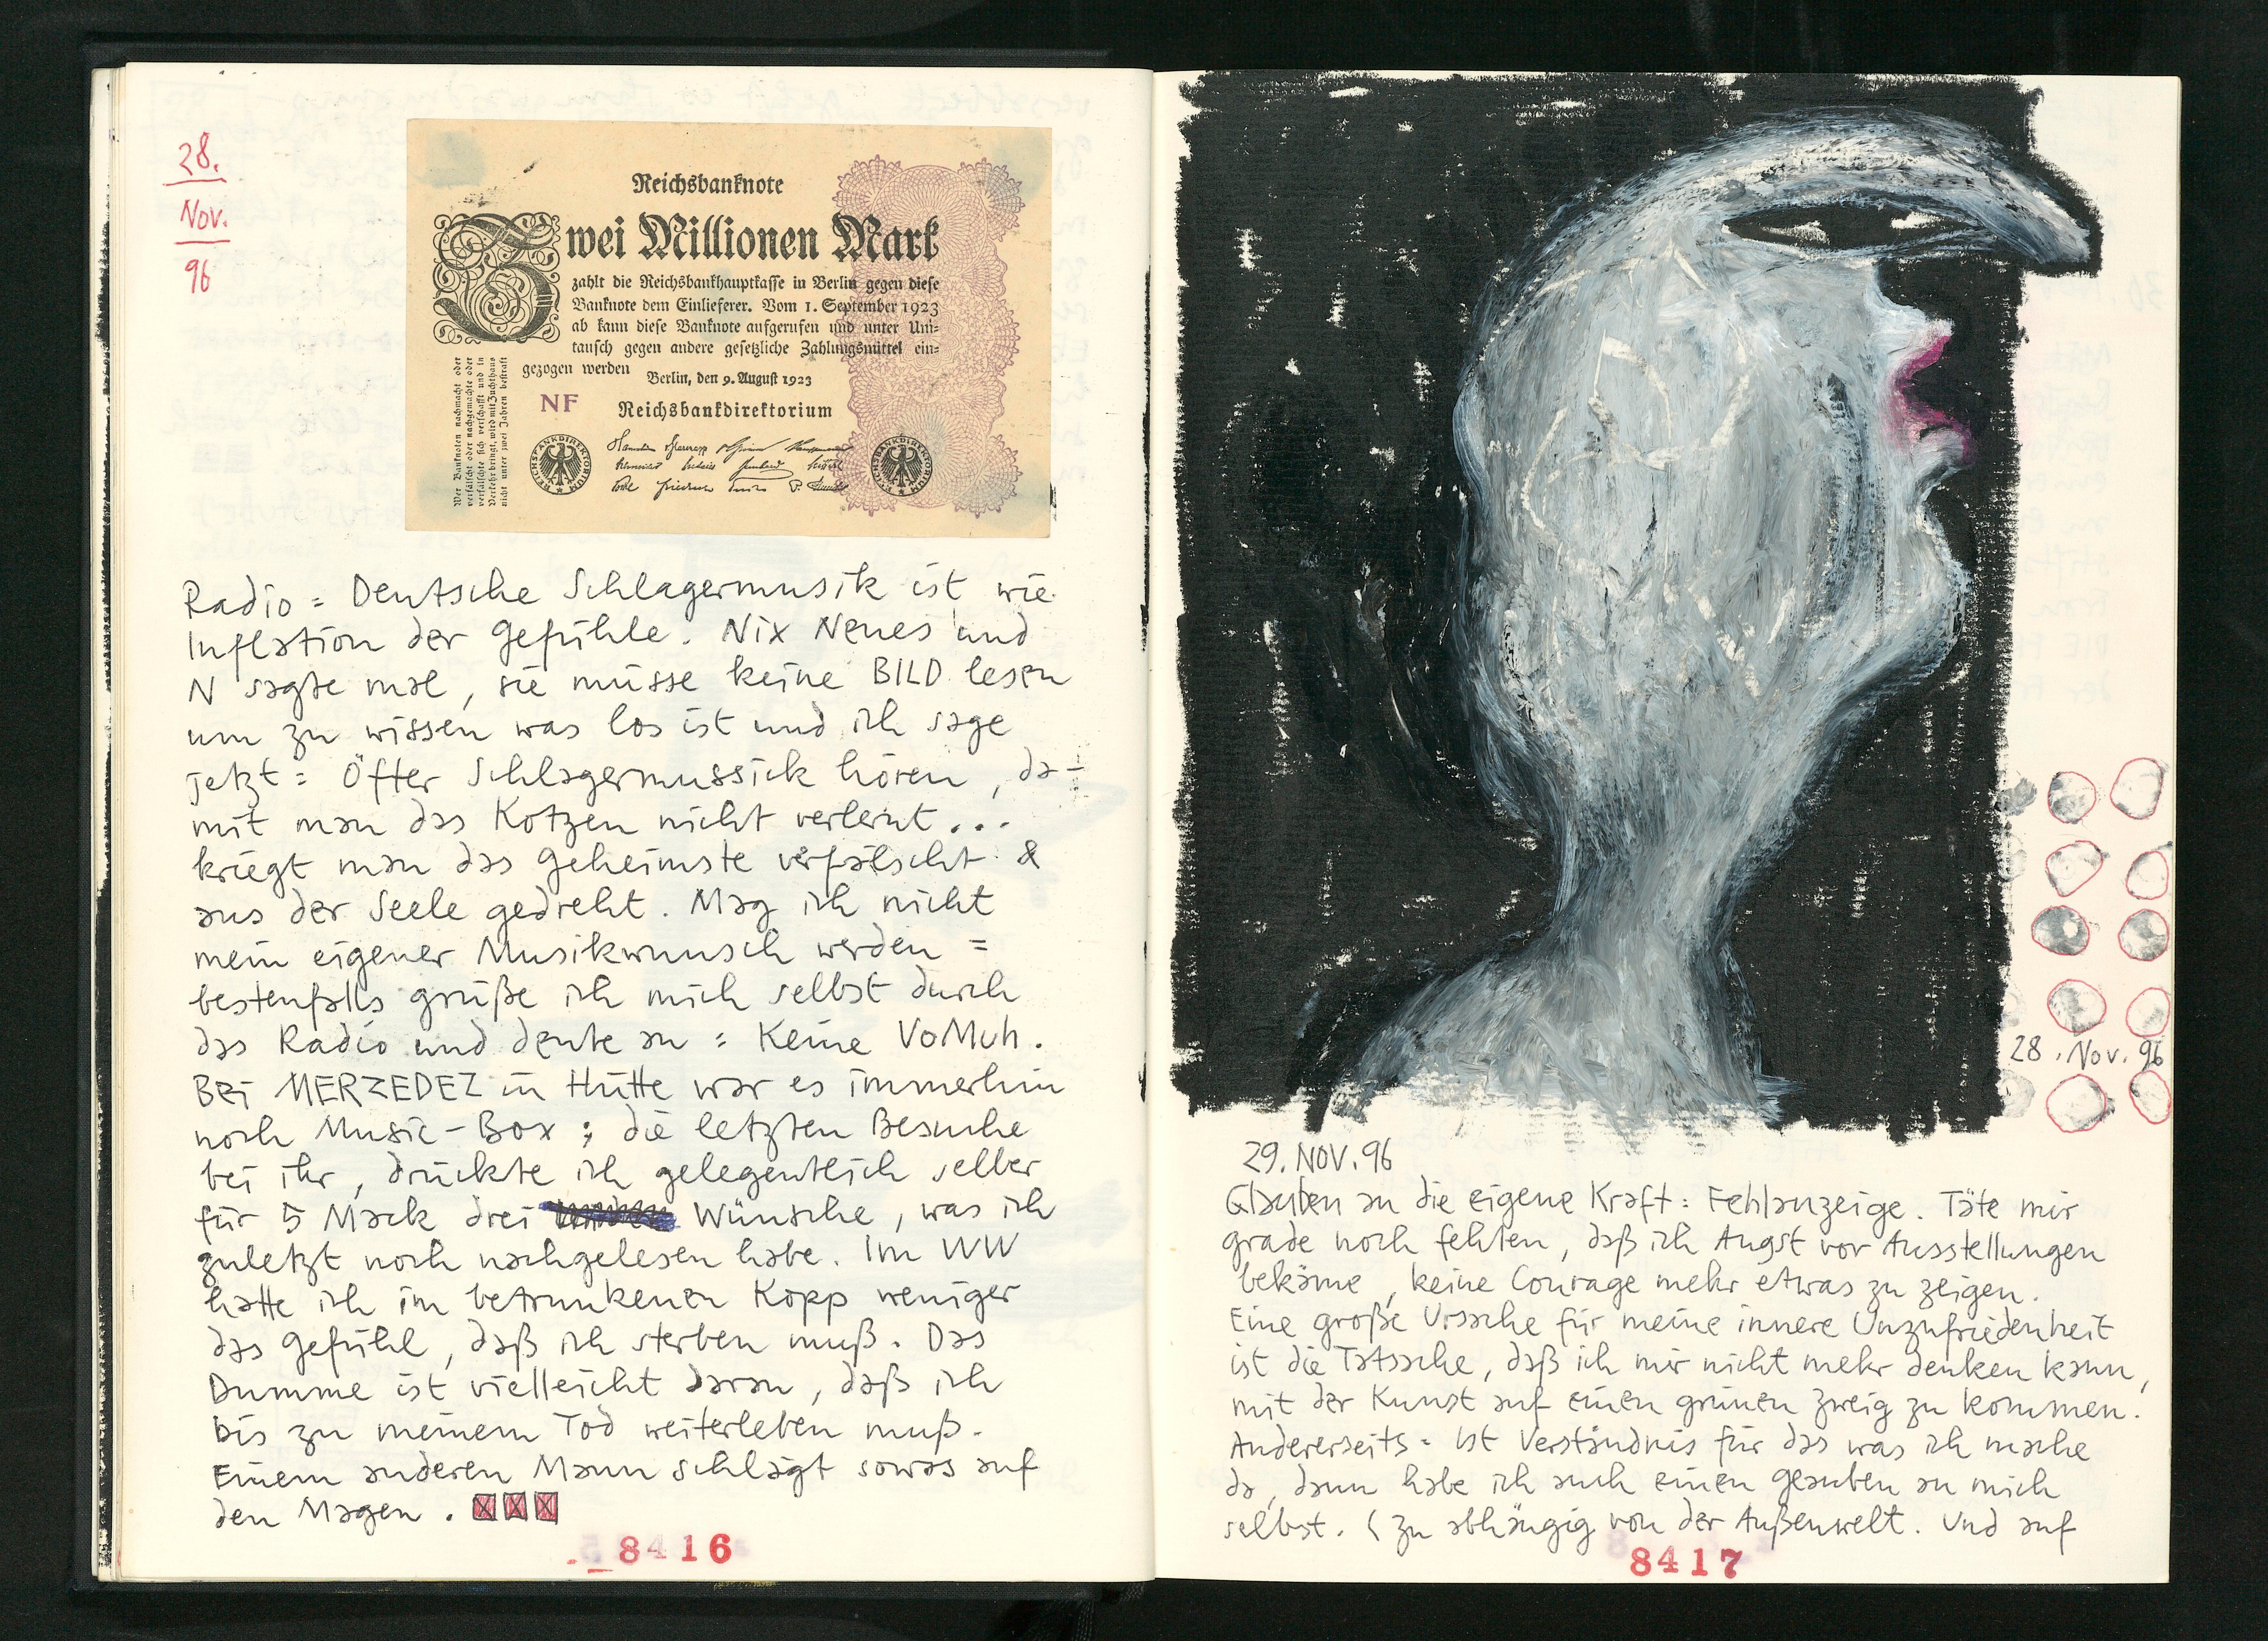 28.
Nov.
96
Reichsbanknote
Zwei Millionen Mark
zahlt die Reichsbankhauptkasse in Berlin gegen diese
Banknote dem Einlieferer. Vom 1. September 1923
ab kann diese Banknote aufgerufen und unter Um-
tausch gegen andere gesetzliche Zahlungsmittel ein-
gezogen werden
Berlin, den 9. August 1923
NF
Reichsbankdirektorium
REICHSBANKDIREKTORIUM
REICHSBANKDIREKTORIUM
Wer Banknoten nachmacht oder
verfälscht oder nachgemachte oder
verfälschte sich verschafft und in
Verkehr bringt, wird mit Zuchthaus
nicht unter zwei Jahren bestraft
Radio = Deutsche Schlagermusik ist wie
Inflation der Gefühle. Nix Neues und
N sagte mal, sie müsse keine BILD lesen
um zu wissen was los ist und ich sage
jetzt = Öfter Schlagermussick hören, da-
mit man das Kotzen nicht verlernt...
kriegt man das Geheimste verfälscht &
aus der Seele gedreht. Mag ich nicht
mein eigener Musikwunsch werden =
bestenfalls grüße ich mich selbst durch
das Radio und deute an : Keine VoMuh.
Bei MERZEDEZ in Hütte war es immerhin
noch Music-Box ; die letzten Besuche
bei ihr, drückte ich gelegentlich selber
für 5 Mark drei Wünsche, was ich
zuletzt noch nachgelesen habe. Im WW
hatte ich im betrunkenen Kopp weniger
das Gefühl, daß ich sterben muß. Das
Dumme ist vielleicht daran, daß ich
bis zu meinem Tod weiterleben muß.
Einem anderen Mann schlägt sowas auf
den Magen.
8416
28. Nov. 96
29. NOV. 96
Glauben an die eigene Kraft : Fehlanzeige. Täte mir
grade noch fehlen, daß ich Angst vor Ausstellungen
bekäme, keine Courage mehr etwas zu zeigen.
Eine große Ursache für meine innere Unzufriedenheit
ist die Tatsache, daß ich mir nicht mehr denken kann,
mit der Kunst auf einen grünen Zweig zu kommen.
Andererseits = Ist Verständnis für das was ich mache
da, dann habe ich auch einen Glauben an mich
selbst. ( zu abhängig von der Außenwelt. Und auf
8417